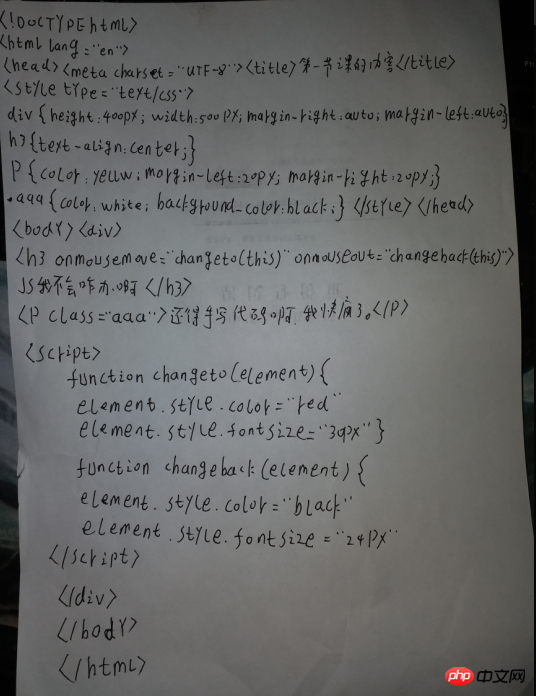 <!DOCTYPE html>
<html lang="en">
<head><meta charset="UTF-8"><title>第一节课的内容</title>
<style type="text/css">
div{height:400px; width:500px; margin-right:auto; margin-left:auto;}
h3{text-align:center;}
P{color:yellw; margin-left:20px; margin-right:20px;}
.aaa{color:white; background_color:black;}</style></head>
<body><div>
<h3 onmousemove="changeto(this)" onmouseout="changeback(this)">
JS我不会咋办啊</h3>
<P class="aaa">还得手写代码啊,我快疯了。</P>
<script>
function changeto(element){
element.style.color="red"
element.style.fontsize="30px"}
function changeback(element){
element.style.color="black"
element.style.fontsize="24px"
</script>
</div>
</body>
</html>
php 中文网